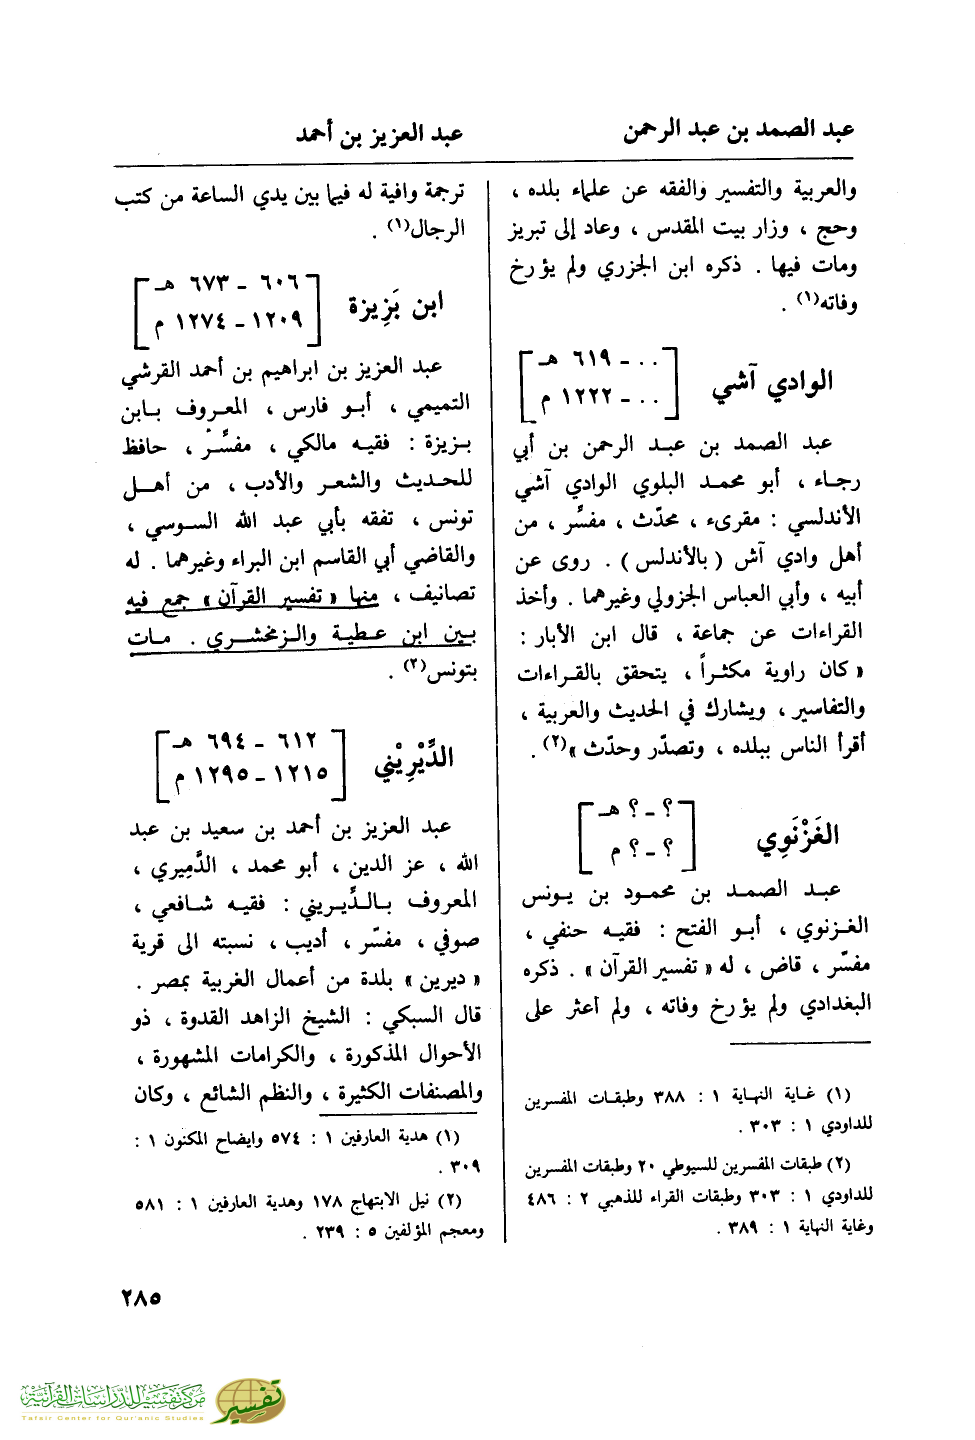 عبد الصمد بن عبد الرحمن
عبد العزيز بن أحمد
والعربية والتفسير والفقه عن علماء بلده ،
وحج ، وزار بيت المقدس ، وعاد إلى تبريز
ومات فيها . ذكره ابن الجزري ولم يؤرخ
وفاته(١) .
الوادي آشي
[ . . ـ ٦١٩ هـ
. . ـ ١٢٢٢ م ]
عبد الصمد بن عبد الرحمن بن أبي
رجاء ، أبو محمد البلوي الوادي آشي
الأندلسي : مقرىء ، محدّث ، مفسِّر ، من
أهل وادي آش ( بالأندلس ) . روى عن
أبيه ، وأبي العباس الجزولي وغيرهما . وأخذ
القراءات عن جماعة ، قال ابن الأبار :
« كان راوية مكثراً ، يتحقق بالقراءات
والتفاسير ، ويشارك في الحديث والعربية ،
أقرأ الناس ببلده ، وتصدّر وحدّث »(٢) .
الغَزْنَوِي
[ ؟ ـ ؟ هـ
؟ ـ ؟ م ]
عبد الصمد بن محمود بن يونس
الغزنوي ، أبو الفتح : فقيه حنفي ،
مفسّر ، قاض ، له « تفسير القرآن » . ذكره
البغدادي ولم يؤرخ وفاته ، ولم أعثر على
(١) غاية النهاية ١ : ٣٨٨ وطبقات المفسرين
للداودي ١ : ٣٠٣ .
(٢) طبقات المفسرين للسيوطي ٢٠ وطبقات المفسرين
للداودي ١ : ٣٠٣ وطبقات القراء للذهبي ٢ : ٤٨٦
وغاية النهاية ١ : ٣٨٩ .
ترجمة وافية له فيما بين يدي الساعة من كتب
الرجال(١) .
ابن بَزِيزة
[ ٦٠٦ ـ ٦٧٣ هـ
١٢٠٩ ـ ١٢٧٤ م ]
عبد العزيز بن ابراهيم بن أحمد القرشي
التميمي ، أبو فارس ، المعروف بابن
بزيزة : فقيه مالكي ، مفسِّر ، حافظ
للحديث والشعر والأدب ، من أهل
تونس ، تفقه بأبي عبد الله السوسي ،
والقاضي أبي القاسم ابن البراء وغيرهما . له
تصانيف ، منها « تفسير القرآن » جمع فيه
بين ابن عطية والزمخشري . مات
بتونس(٢) .
الدِّيْرِيْني
[ ٦١٢ ـ ٦٩٤ هـ
١٢١٥ ـ ١٢٩٥ م ]
عبد العزيز بن أحمد بن سعيد بن عبد
الله ، عز الدين ، أبو محمد ، الدَّمِيري ،
المعروف بالدِّيريني : فقيه شافعي ،
صوفي ، مفسّر ، أديب ، نسبته الى قرية
« ديرين » بلدة من أعمال الغربية بمصر .
قال السبكي : الشيخ الزاهد القدوة ، ذو
الأحوال المذكورة ، والكرامات المشهورة ،
والمصنفات الكثيرة ، والنظم الشائع ، وكان
(١) هدية العارفين ١ : ٥٧٤ وايضاح المكنون ١ :
٣٠٩ .
(٢) نيل الابتهاج ١٧٨ وهدية العارفين ١ : ٥٨١
ومعجم المؤلفين ٥ : ٢٣٩ .
٢٨٥
مركز تفسير للدراسات القرآنية
Tafsir Center for Qur'anic Studies
تفسير